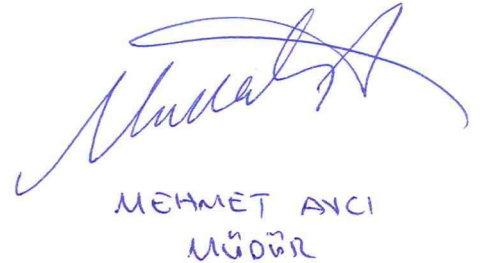 MEHMET AVCI
MÜDÜR